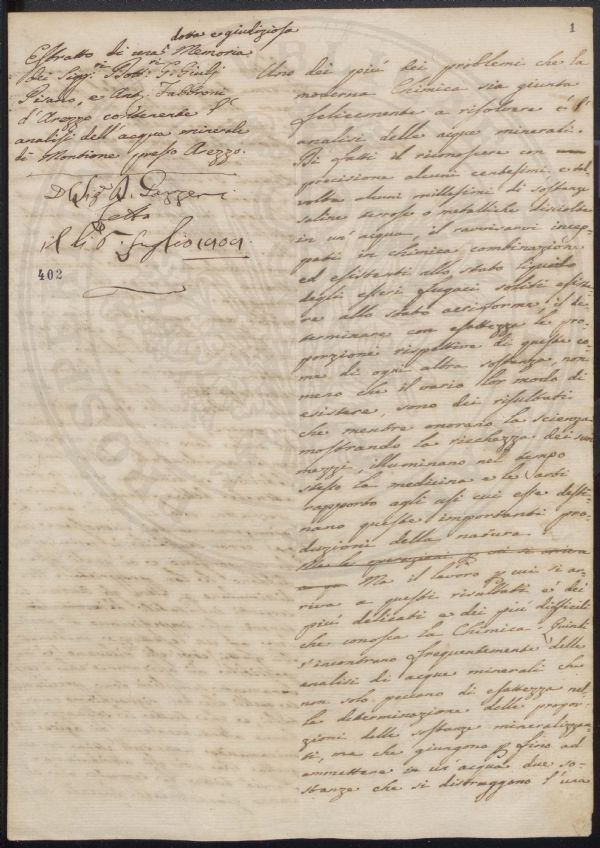 1
dotta e giudiziosa
Estratto di una Memoria
dei Sigg.ri Dott.ri G. Giulj
Pisano, e Ant. Fabbroni
d'Arezzo contenente l'
analisi dell'acqua minerale
di Montione presso Arezzo.
Del Sig.r
Letto
il dì 6. Luglio
402
Uno dei più dei problemi che la
moderna Chimica sia giunta
felicemente a risolvere è l'
analisi delle acque minerali.
Di fatti il riconoscere con
precisione alcuni centesimi, e tal
volta alcuni millesimi di sostanze
saline terrose o metalliche disciolte
in un'acqua, il ravvisarvi incep-
pati in chimica combinazione
ed esistenti allo stato liquido
degli esseri fugaci soliti esiste-
re allo stato aeriforme, il de-
terminare con esattezza le pro-
porzioni rispettive di queste co-
me di ogni altra sostanza, non
meno che il vario lor modo di
esistere, sono dei risultati
che mentre onorano la scienza
mostrando la ricchezza dei suoi
mezzi, illuminano nel tempo
stesso la medicina e le arti
rapporto agli usi cui esse desti-
nano queste importanti pro-
duzioni della natura.
Ma le operazioni p cui si arriva
Ma il lavoro p cui si ar-
riva a questi risultati è dei
più delicati e dei più difficili
che conosca la Chimica. Quindi
s'incontrano frequentemente delle
analisi di acque minerali che
non solo peccano di esattezza nel-
la determinazione delle propor-
zioni delle sostanze mineralizzan-
ti, ma che giungono p fino ad
ammettere in un'acqua due so-
stanze che si distruggono l'una